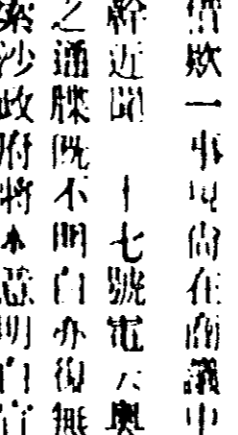 借款一事現尚在商議中
幹近聞 十七號電云奧
之通牒既不明白亦復無
索沙政府將本意明白宣